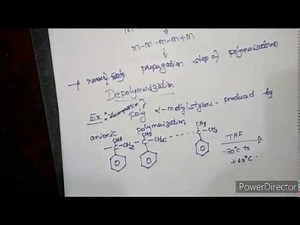 m-m-m-m+m
propagation step of polymerization
Depolymerization
Ex: poly α-methylstyrene produced by
anionic polymerization
CH3 CH3 CH3
THF
-70°C to
+65°C
PowerDirector